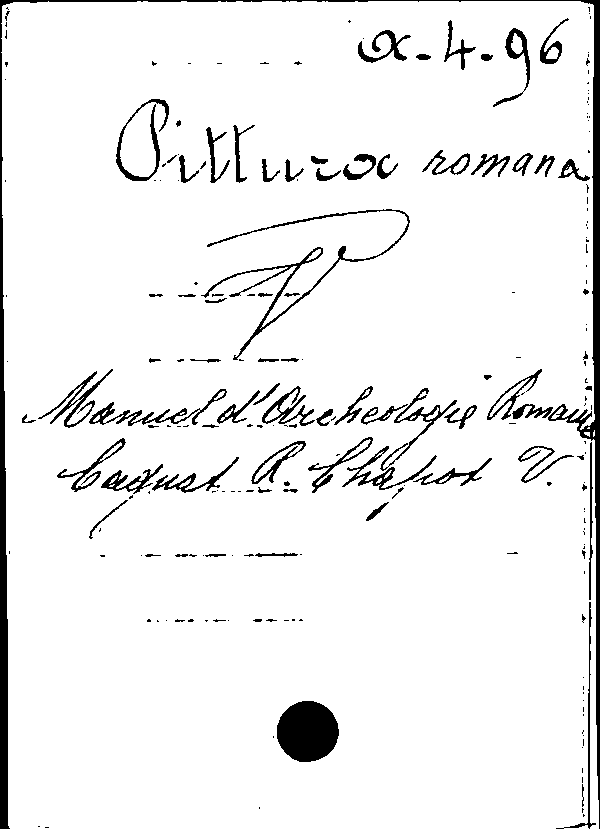 α.4.96
Pittura romana
V
Manuel d'Archeologie Romaine
Cagnat R. Chapot V.